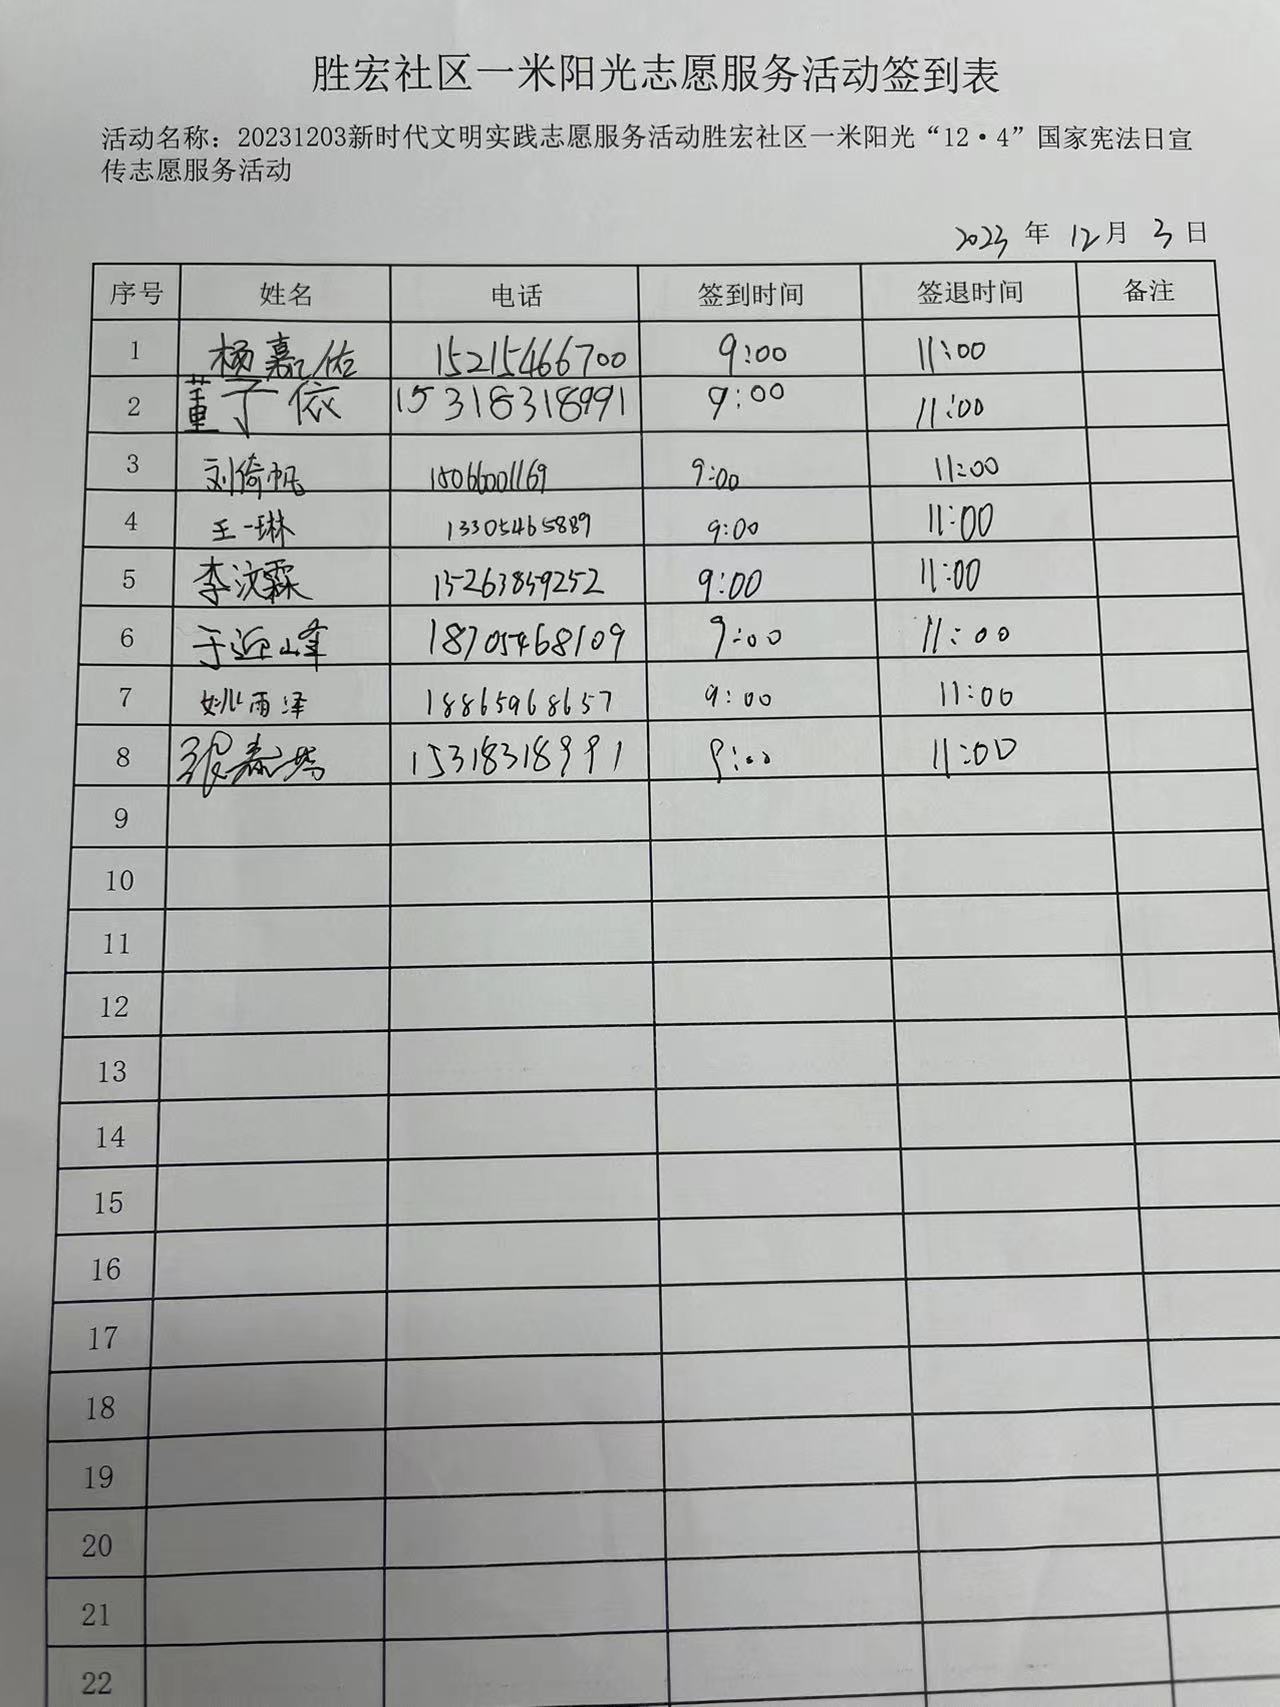 胜宏社区一米阳光志愿服务活动签到表
活动名称：20231203新时代文明实践志愿服务活动胜宏社区一米阳光“12·4”国家宪法日宣
传志愿服务活动
2023 年 12 月 3 日
序号 姓名 电话 签到时间 签退时间 备注
1 杨嘉佑 15215466700 9:00 11:00
2 董子依 15318318991 9:00 11:00
3 刘倚帆 15066001169 9:00 11:00
4 王一琳 13305465889 9:00 11:00
5 李汶霖 15263859252 9:00 11:00
6 于近峰 18705468109 9:00 11:00
7 姚雨泽 18865968657 9:00 11:00
8 15318318991 9:00 11:00
9
10
11
12
13
14
15
16
17
18
19
20
21
22